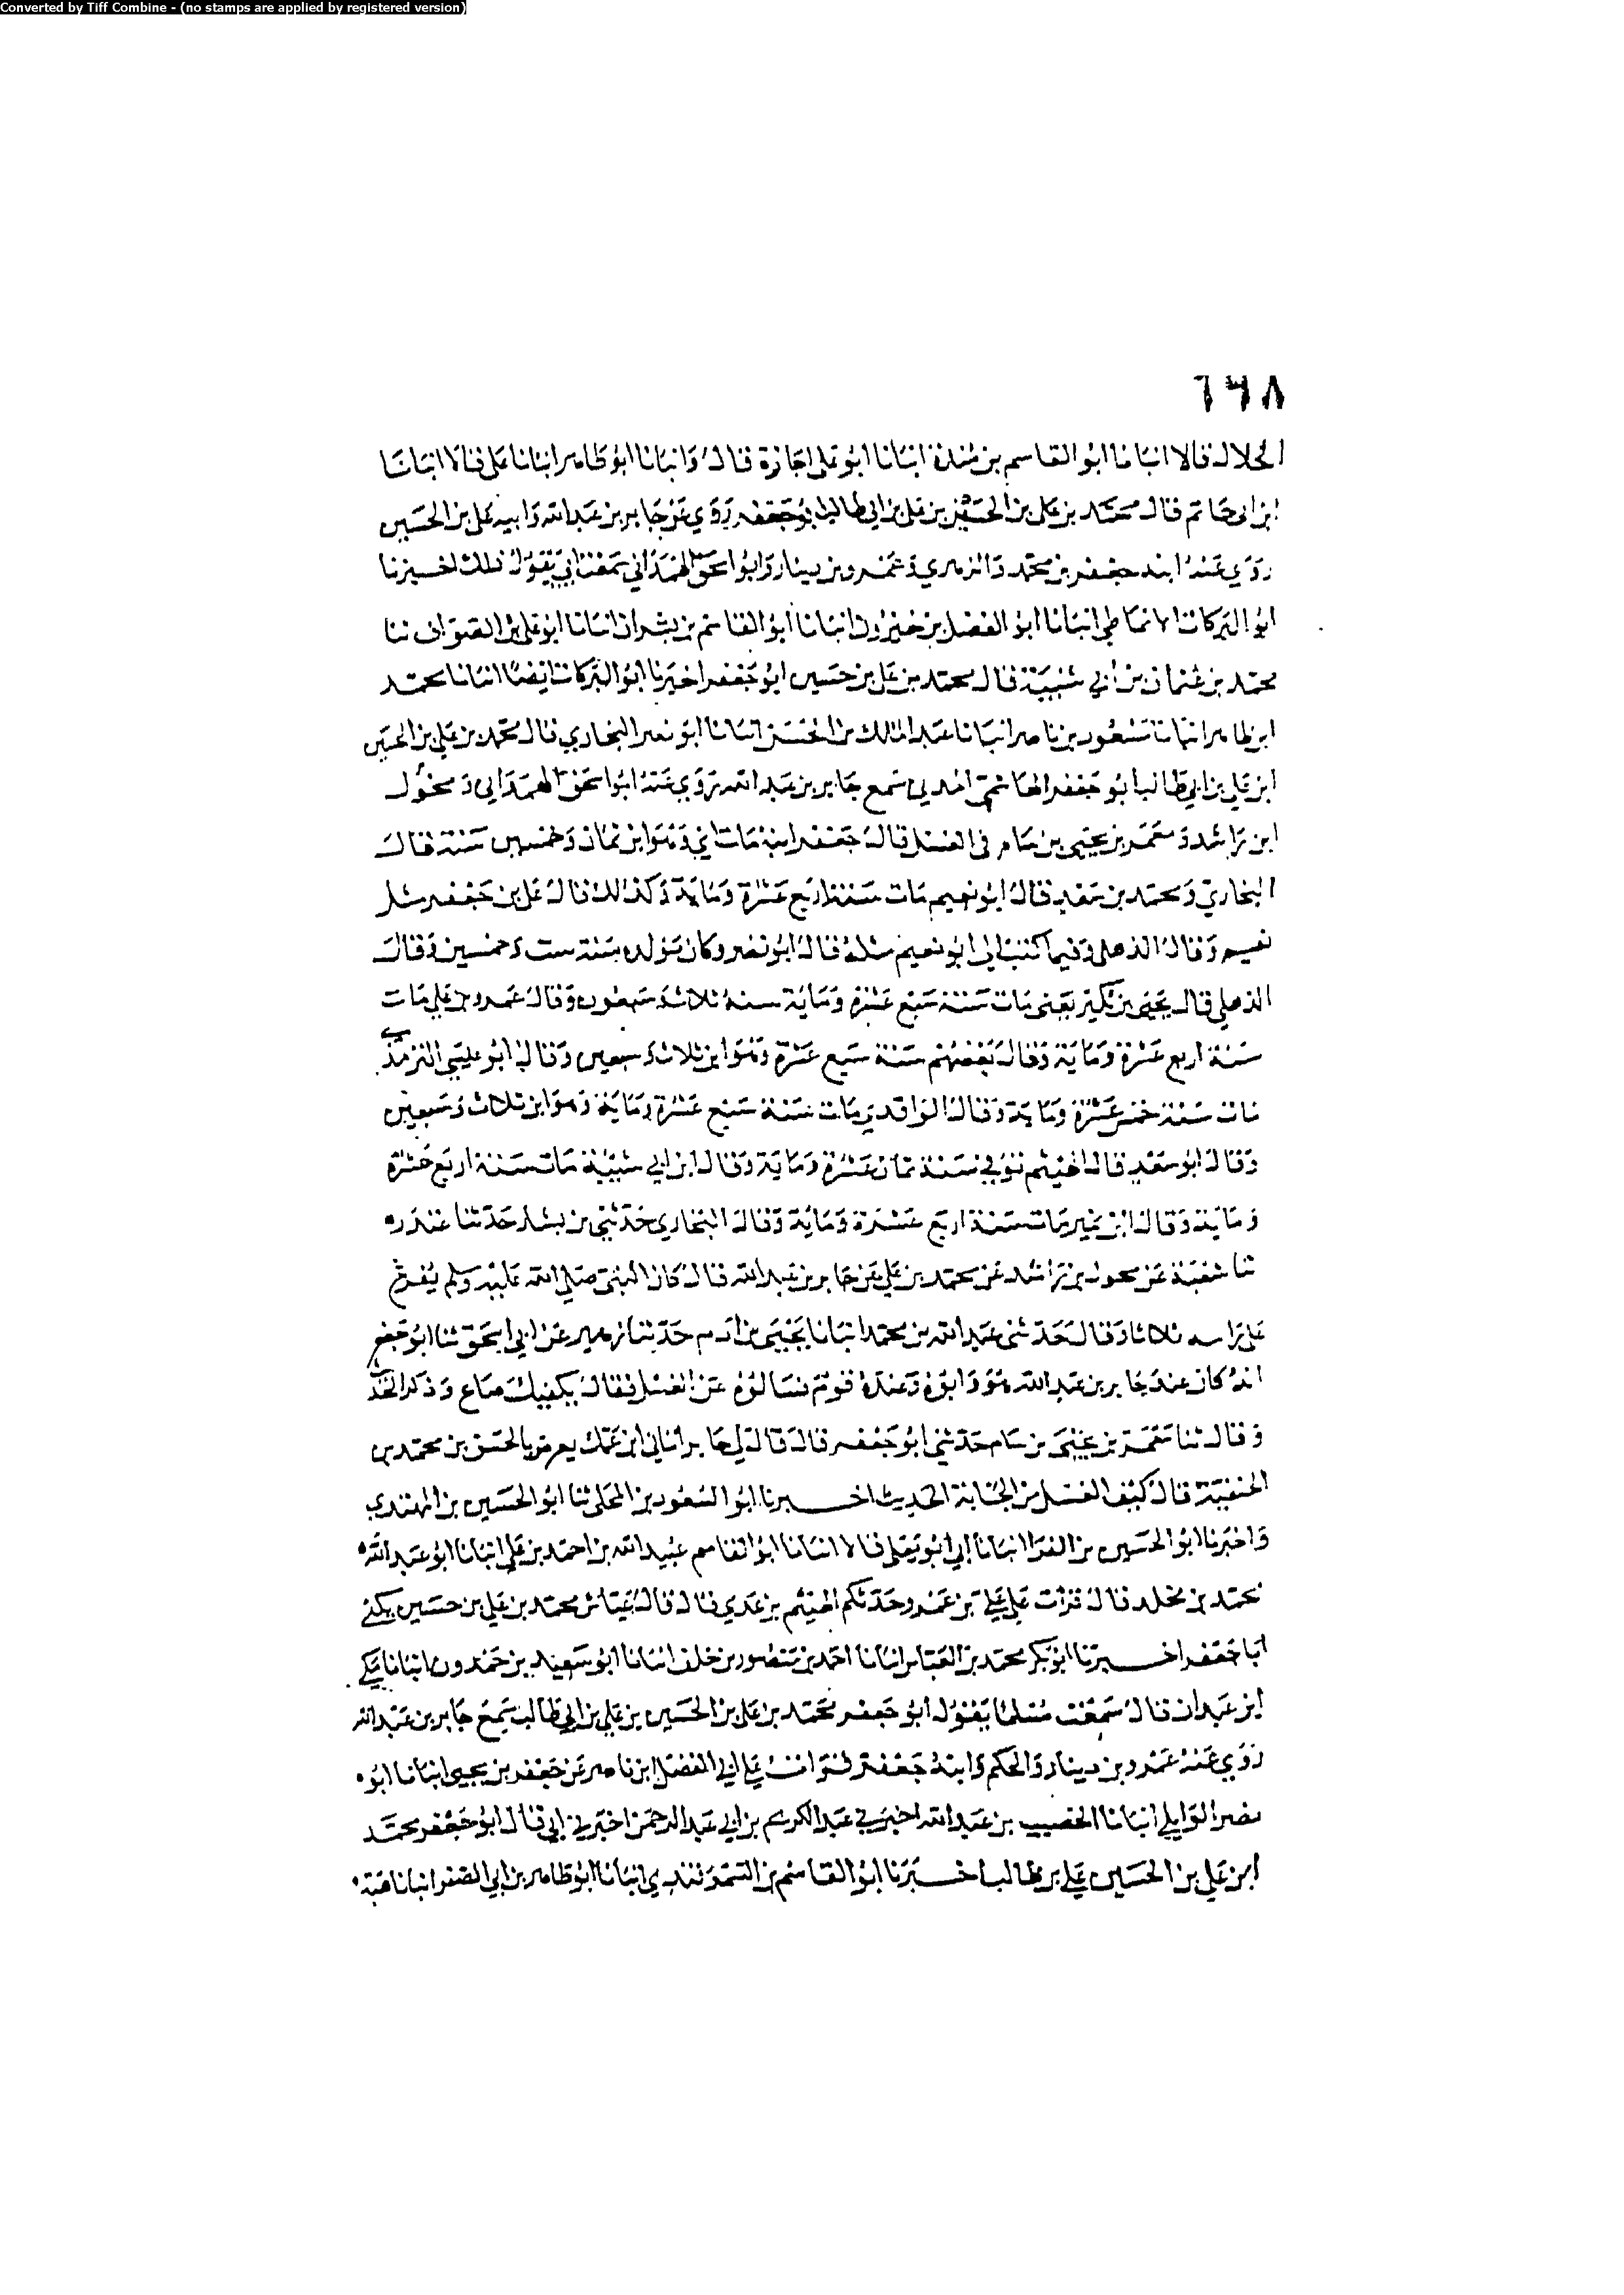 Converted by Tiff Combine - (no stamps are applied by registered version)
٦٦٨
الخلال قالا انبانا ابو القاسم بن مندة انبانا ابو علي اجازة قال وانبانا ابو طاهر انبانا علي قالا انبانا
ابن ابي حاتم قال محمد بن علي بن الحسين بن علي بن ابي طالب ابو جعفر روي عن جابر بن عبد الله وابيه علي بن الحسين
روي عنه ابنه جعفر بن محمد والزهري وعمرو بن دينار وابو اسحق الهمداني سمعت ابي يقول ذلك اخبرنا
ابو البركات الانماطي انبانا ابو الفضل بن خيرون انبانا ابو القاسم بن بشران انبانا ابو علي بن الصواف ثنا
محمد بن عثمان بن ابي شيبة قال محمد بن علي بن حسين ابو جعفر اخبرنا ابو البركات ايضا انبانا محمد
ابن طاهر انبانا مسعود بن ناصر انبانا عبد الملك بن الحسن انبانا ابو نصر البخاري قال محمد بن علي بن الحسين
ابن علي بن ابي طالب ابو جعفر الهاشمي المدني سمع جابر بن عبد الله روي عنه ابو اسحق الهمداني ومخول
ابن راشد ومعمر بن يحيى بن سام في الغسل قال جعفر ابنه مات ابي وهو ابن ثمان وخمسين سنة قال
البخاري ومحمد بن سعد قال ابو نعيم مات سنة اربع عشرة وماية وكذلك قال علي بن جعفر مثل
نعيم وقال الذهلي وفيما كتب الي ابو نعيم مثله قال ابو نصر وكان مولده سنة ست وخمسين وقال
الذهلي قال يحيى بن بكير يعني مات سنة سبع عشرة وماية سنه ثلاث وسبعون وقال عمرو بن علي مات
سنة اربع عشرة وماية وقال بعضهم سنة سبع عشرة وهو ابن ثلاث وسبعين وقال ابو عيسى الترمذي
مات سنة خمس عشرة وماية وقال الواقدي مات سنة سبع عشرة وماية وهو ابن ثلاث وسبعين
وقال ابو سعد قال الهيثم توفي سنة ثمان عشرة وماية وقال ابن ابي شيبة مات سنة اربع عشرة
وماية وقال ابن نمير مات سنة اربع عشرة وماية وقال البخاري حدثني بن بشار حدثنا غندر
ثنا شعبة عن مخول بن راشد عن محمد بن علي عن جابر بن عبد الله قال كان النبي صلى الله عليه وسلم يفرغ
على راسه ثلاثا وقال حدثني عبد الله بن محمد انبانا يحيى بن ادم حدثنا زهير عن ابي اسحق ثنا ابو جعفر
انه كان عند جابر بن عبد الله هو وابوه وعنده قوم فسالوه عن الغسل فقال يكفيك صاع وذكر الحديث
وقال ثنا معمر بن يحيى بن سام حدثني ابو جعفر قال قال لي جابر اتاني ابن عمك يعرض بالحسن بن محمد بن
الحنفية قال كيف الغسل من الجنابة الحديث اخبرنا ابو السعود بن المجلي ثنا ابو الحسين بن المهتدي
واخبرنا ابو الحسين بن الفرا انبانا ابي ابو يعلى قالا انبانا ابو القاسم عبيد الله بن احمد بن علي انبانا ابو عبد الله
محمد بن مخلد قال قرات على علي بن عمرو حدثكم الهيثم بن عدي قال قال ابن عياش محمد بن علي بن حسين يكنى
ابا جعفر اخبرنا ابو بكر محمد بن العباس انبانا احمد بن منصور بن خلف انبانا ابو سعيد بن حمدون انبانا مكي
ابن عبدان قال سمعت مسلما يقول ابو جعفر محمد بن علي بن الحسين بن علي بن ابي طالب سمع جابر بن عبد الله
روي عنه عمرو بن دينار والحكم وابنه جعفر قرات على ابي الفضل ابن ناصر عن جعفر بن يحيى انبانا ابو
نصر الوايلي انبانا الخصيب بن عبد الله اخبرني عبد الكريم بن ابي عبد الرحمن اخبرني ابي قال ابو جعفر محمد
ابن علي بن الحسين علي بن طالب اخبرنا ابو القاسم بن السمرقندي انبانا ابو طاهر بن ابي الصقر انبانا هبة